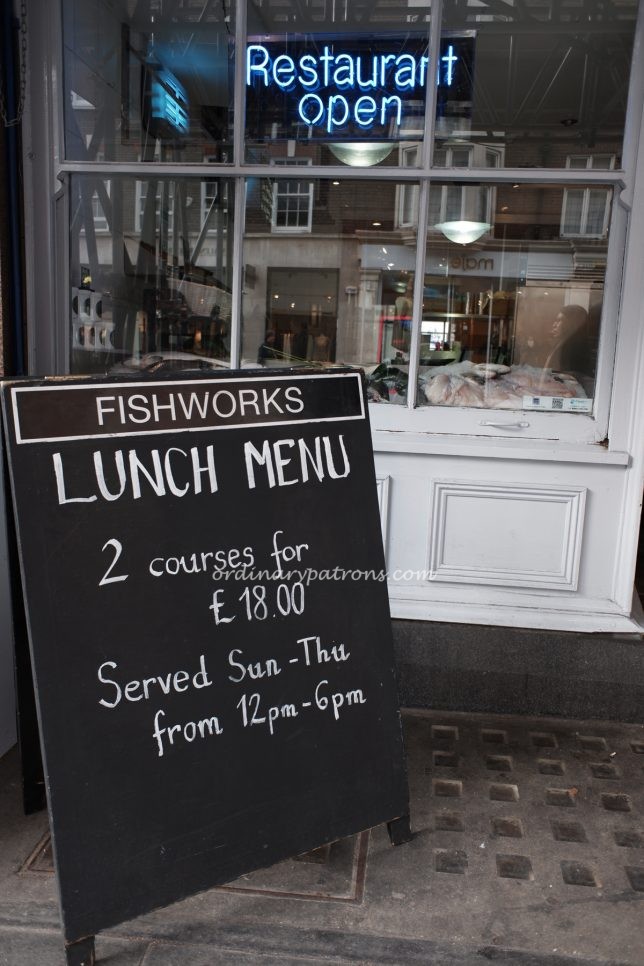 Restaurant
open
maje
FISHWORKS
LUNCH MENU
2 courses for
£18.00
ordinarypatrons.com
Served Sun-Thu
from 12pm-6pm